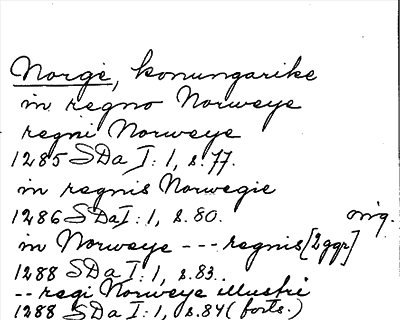 Norge, konungarike
in regno Norweye
regni Norweye
1285 SDa I: 1, s. 77.
in regnis Norwegie
1286 SDa I: 1, s. 80. orig.
in Norweye --- regnis [2 ggr]
1288 SDa I: 1, s. 83.
-- regi Norweye illustri
1288 SDa I: 1, s. 84 (forts.)